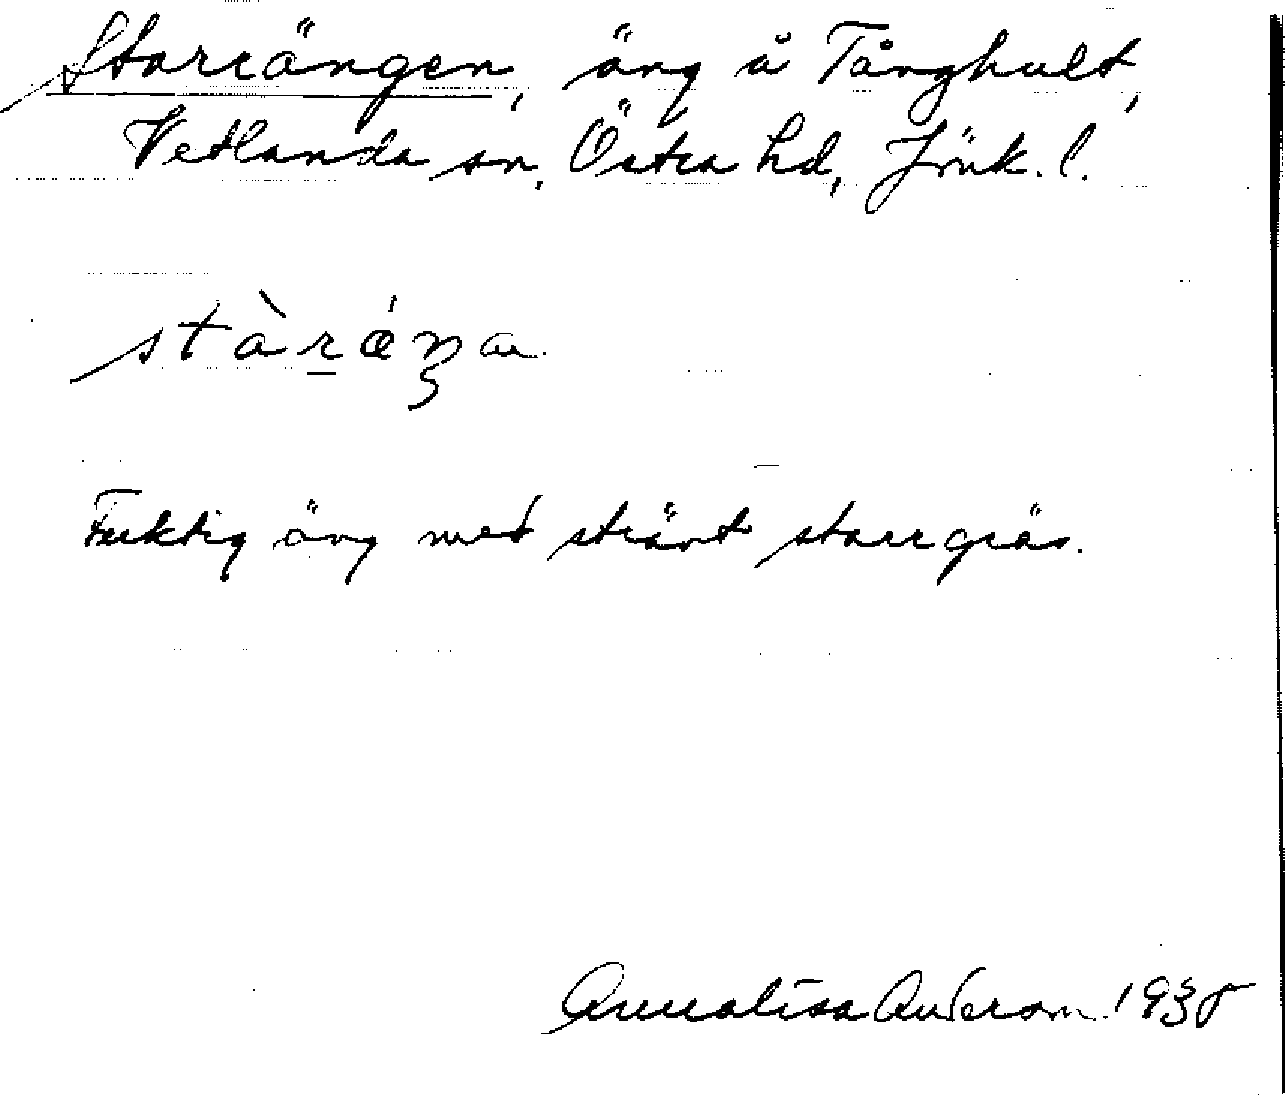 Starrängen, äng å Tånghult,
Vetlanda sn, Östra hd, Jönk. l.
stàrǽŋa
Fuktig äng med strävt starrgräs.
Annalisa Anderson. 1930